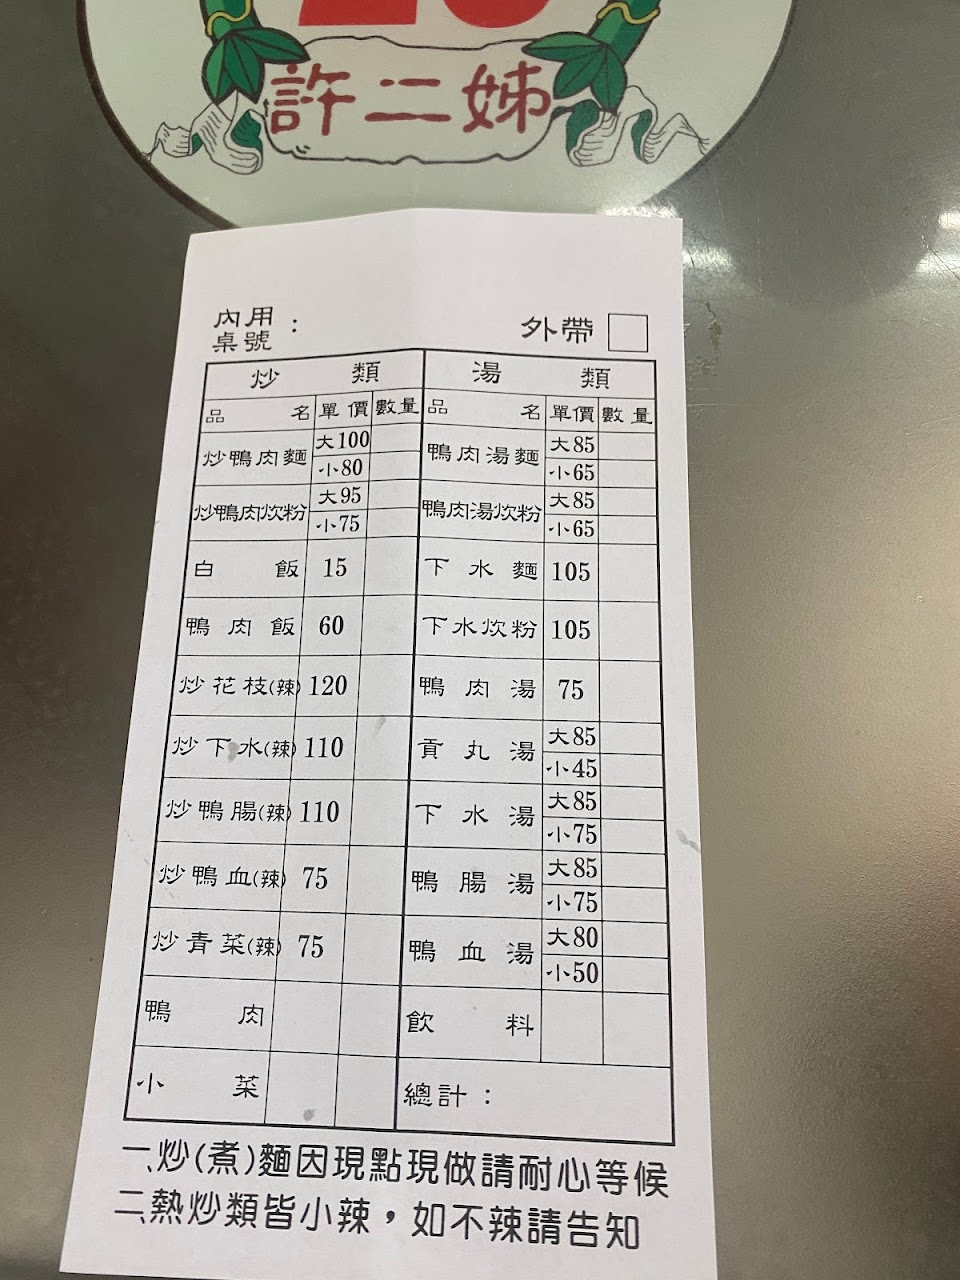 許二姊
內用
桌號：
外帶
炒類 湯類
品名 單價 數量 品名 單價 數量
炒鴨肉麵 大100 鴨肉湯麵 大85
小80 小65
炒鴨肉炊粉 大95 鴨肉湯炊粉 大85
小75 小65
白飯 15 下水麵 105
鴨肉飯 60 下水炊粉 105
炒花枝(辣) 120 鴨肉湯 75
炒下水(辣) 110 貢丸湯 大85
小45
炒鴨腸(辣) 110 下水湯 大85
小75
炒鴨血(辣) 75 鴨腸湯 大85
小75
炒青菜(辣) 75 鴨血湯 大80
小50
鴨肉 飲料
小菜 總計：
一、炒(煮)麵因現點現做請耐心等候
二、熱炒類皆小辣，如不辣請告知